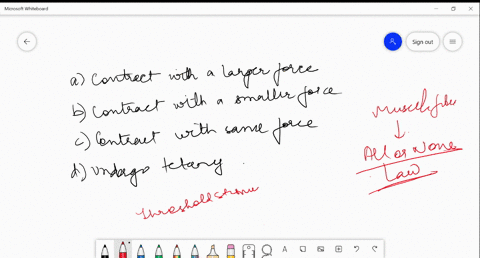 Microsoft Whiteboard
Sign out
a) Contract with a larger force
b) Contract with a smaller force
c) Contract with same force
d) undergo tetany.
Muscle fibre
All or None
Law
Threshold